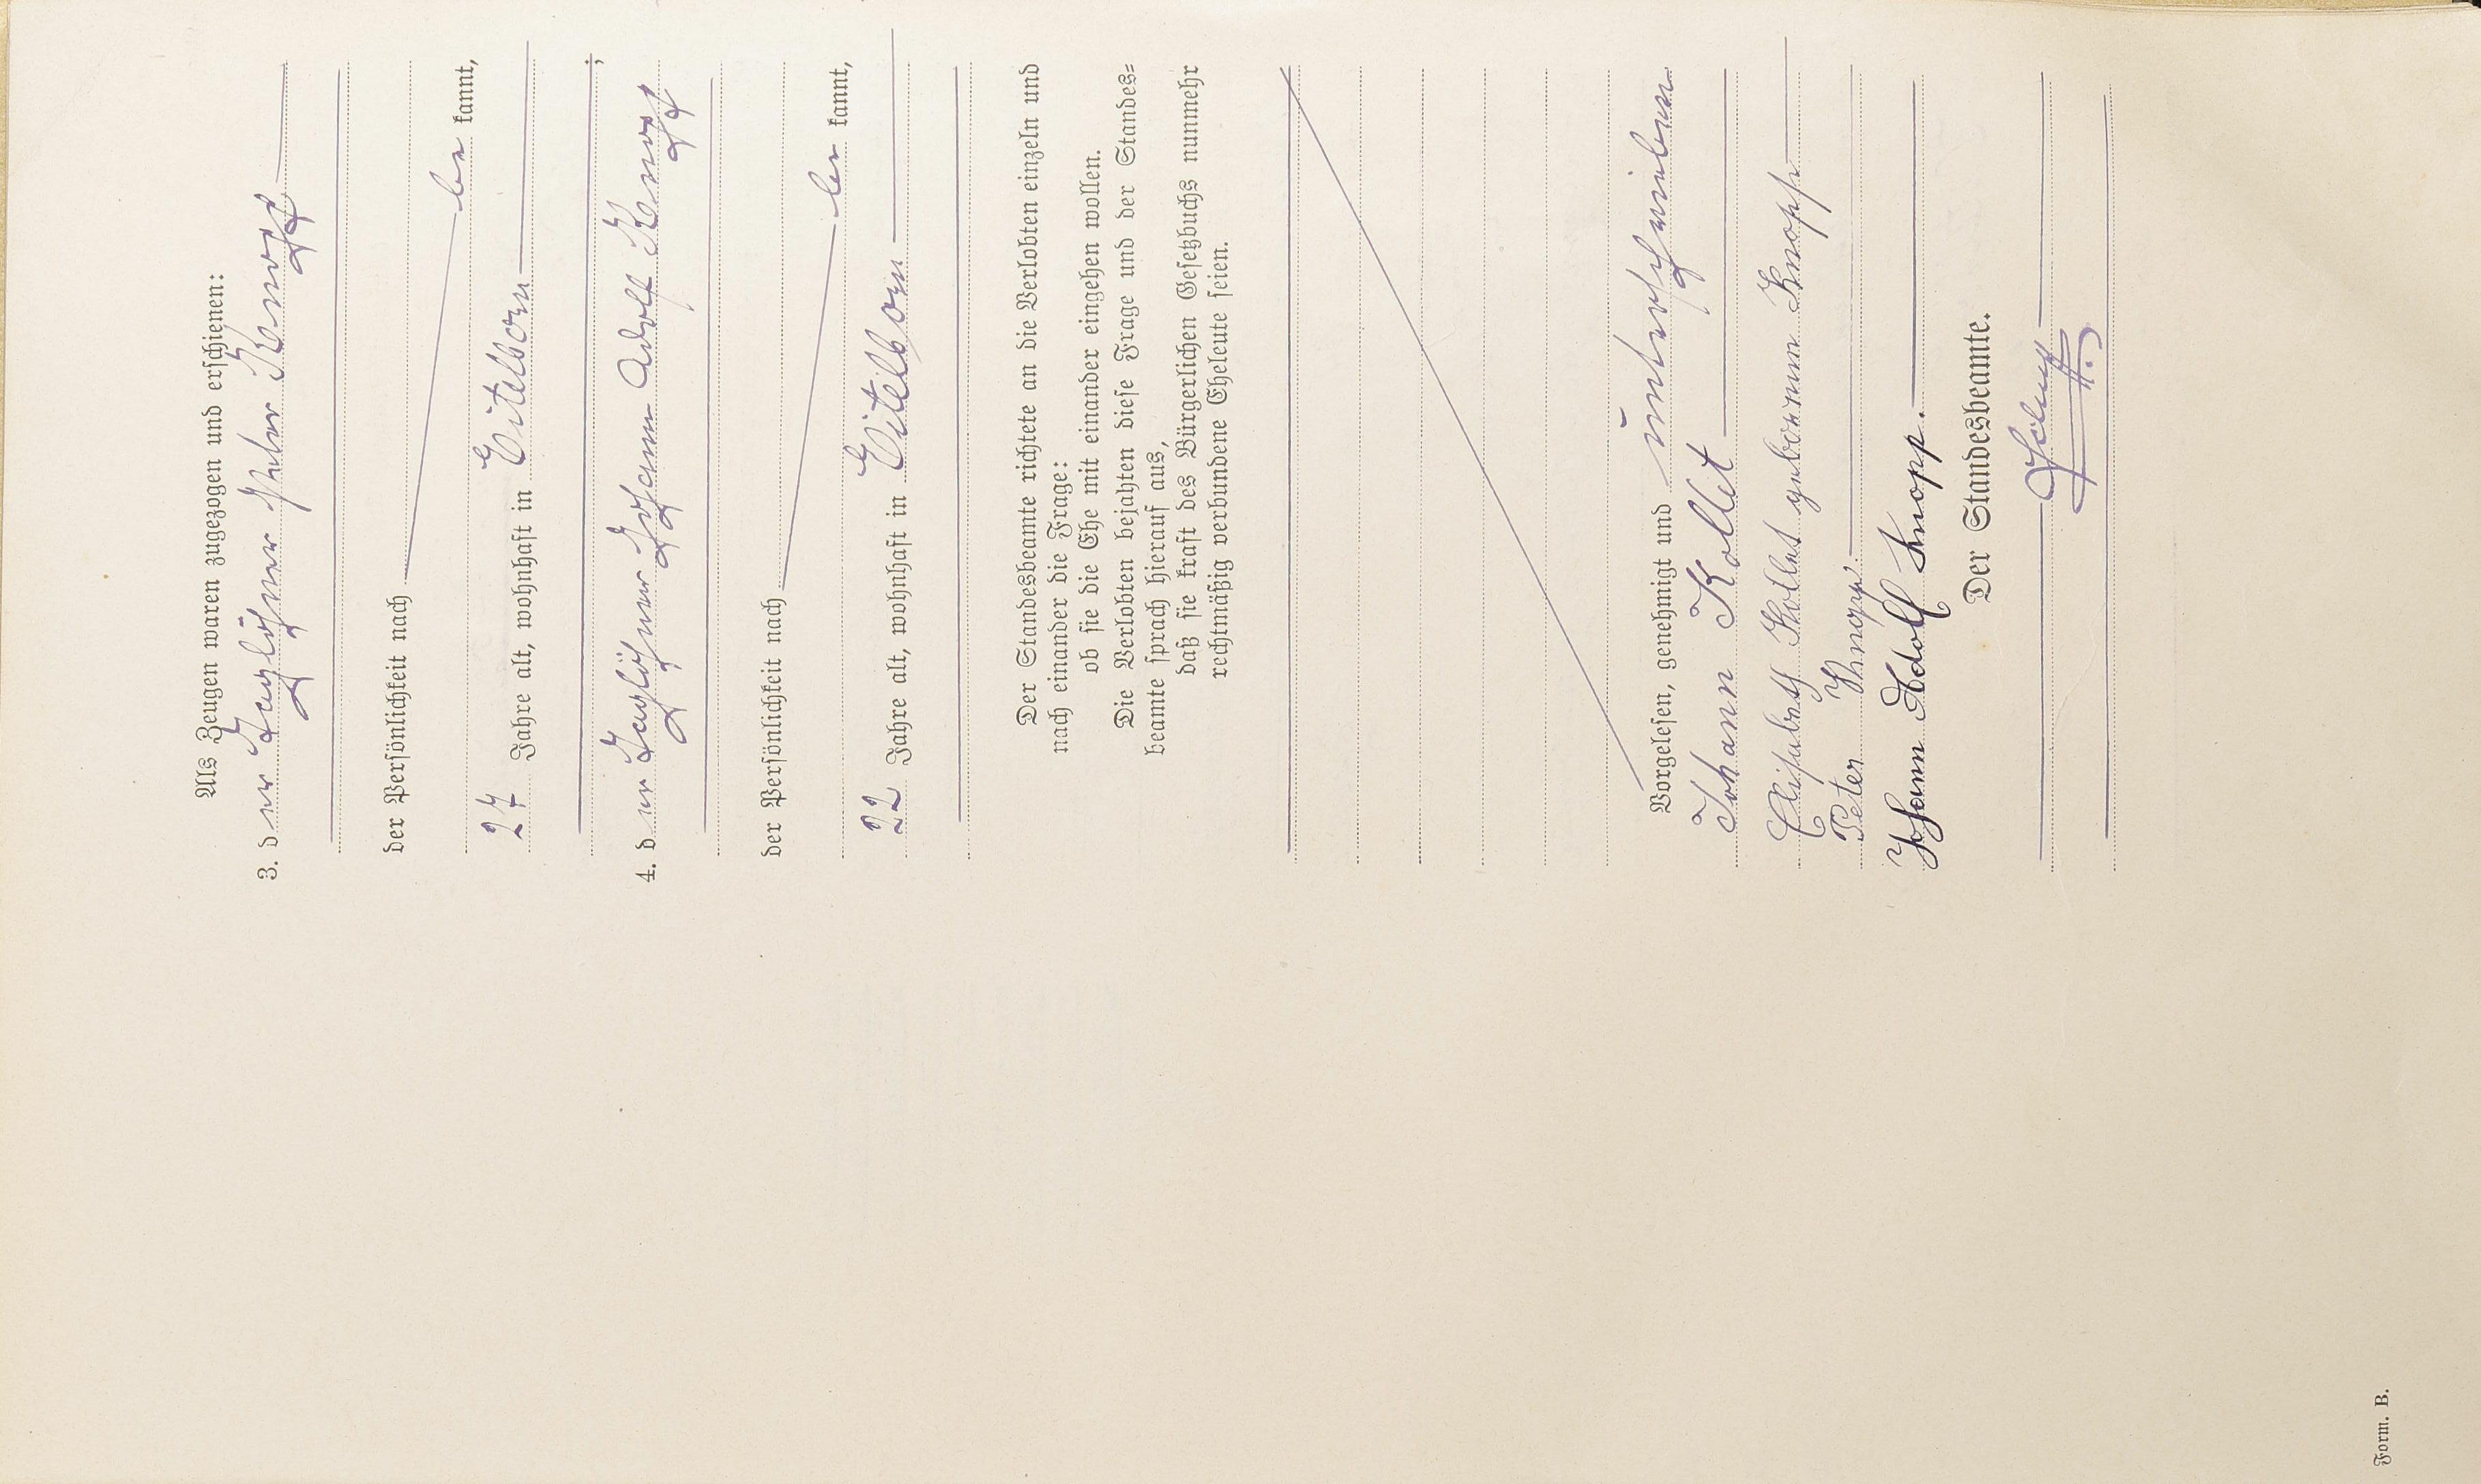 Als Zeugen waren zugezogen und erschienen:
3. der Taglöhner Peter Knopp
der Persönlichkeit nach
be kannt,
27 Jahre alt, wohnhaft in Eitelborn
;
4. der Taglöhner Johann Adolf Knopp
der Persönlichkeit nach
be kannt,
22 Jahre alt, wohnhaft in Eitelborn
Der Standesbeamte richtete an die Verlobten einzeln und
nach einander die Frage:
ob sie die Ehe mit einander eingehen wollen.
Die Verlobten bejahten diese Frage und der Standes=
beamte sprach hierauf aus,
daß sie kraft des Bürgerlichen Gesetzbuchs nunmehr
rechtmäßig verbundene Eheleute seien.
Vorgelesen, genehmigt und unterschrieben
Johann Kollet
Elisabeth Kollet geborenen Knopp
Peter Knopp
Johann Adolf Knopp.
Der Standesbeamte.
Form. B.